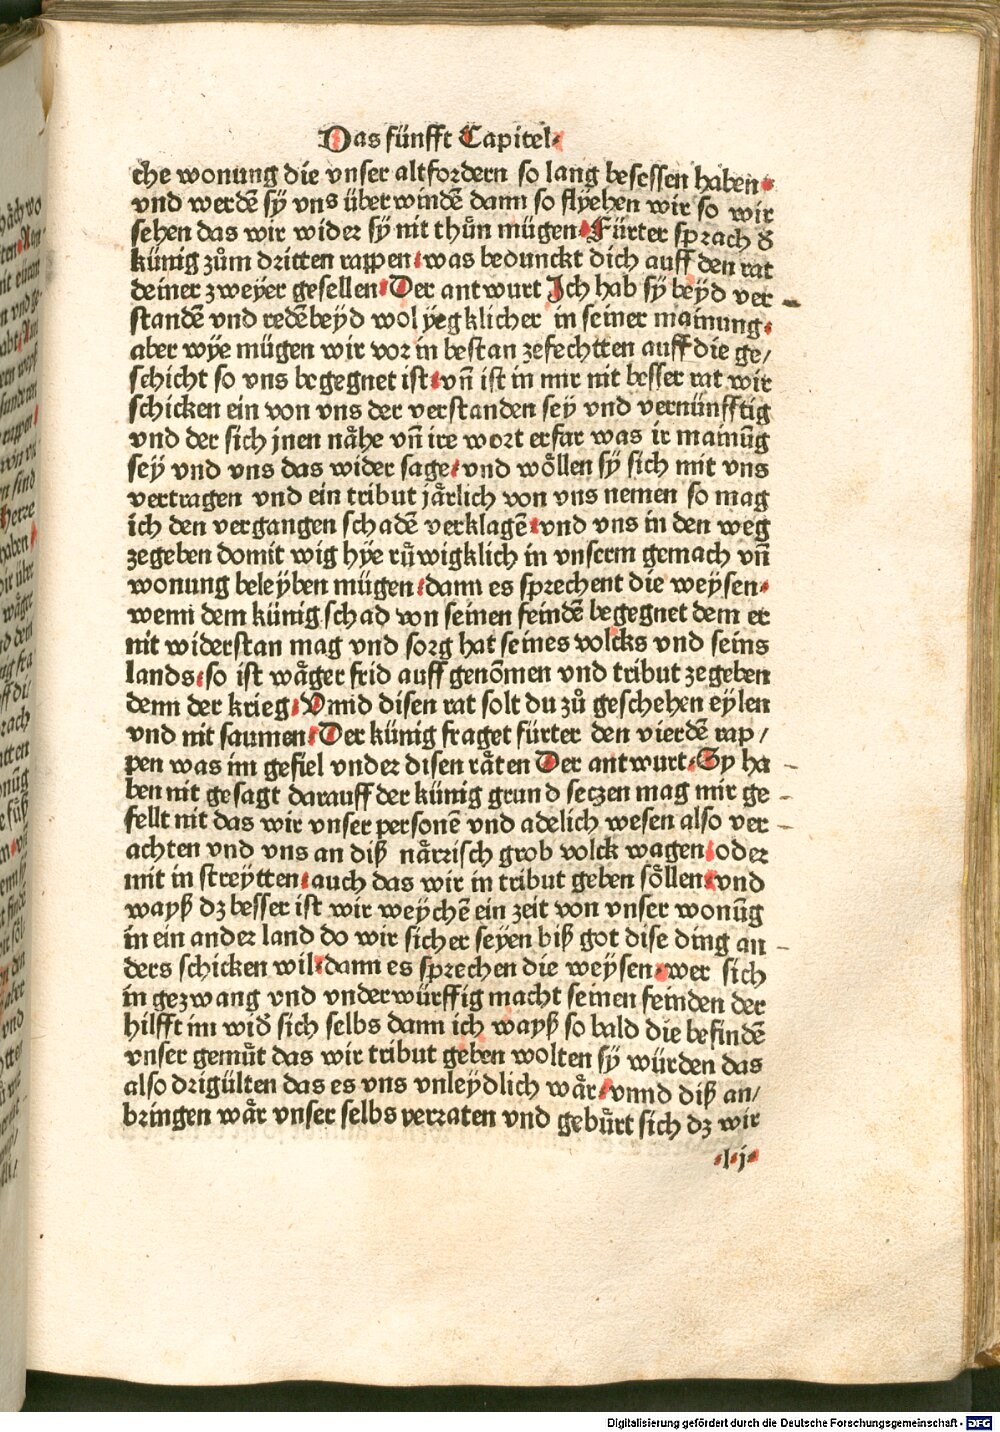 Das fünfft Capitel·
che wonung die vnser altfordern so lang besessen haben·
vnd werdē sÿ vns überwindē dann so flÿehen wir so wir
sehen das wir wider sÿ nit thůn mügen· Fürter sprach ď
künig zům dritten rappen· was bedunckt dich auff den rat
deiner zweÿer gesellen· Der antwurt Ich hab sÿ beÿd ver
standē vnd redēbeÿd wol ÿegklicher in seiner mainung·
aber wÿe mügen wir vor in bestan zefechtten auff die ge/
schicht so vns begegnet ist· vn̄ ist in mir nit besser rat wir
schicken ein von vns der verstanden seÿ vnd vernünfftig
vnd der sich jnen nähe vn̄ ire wort erfar was ir mainūg
seÿ vnd vns das wider sage· vnd wöllen sÿ sich mit vns
vertragen vnd ein tribut järlich von vns nemen so mag
ich den vergangen schadē verklagē· vnd vns in den weg
zegeben domit wig hÿe rüwigklich in vnserm gemach vn̄
wonung beleÿben mügen· dann es sprechent die weÿsen·
wenn dem künig schad von seinen feindē begegnet dem er
nit widerstan mag vnd sorg hat seines volcks vnd seins
lands· so ist wäger frid auff genōmen vnd tribut zegeben
denn der krieg· Vnnd disen rat solt du zů geschehen eylen
vnd nit saumen· Der künig fraget fürter den vierdē rap/
pen was im gefiel vnder disen räten Der antwurt· Sy ha
ben nit gesagt darauff der künig grund setzen mag mir ge
fellt nit das wir vnser personē vnd adelich wesen also ver
achten vnd vns an diß närrisch grob volck wagen· oder
mit in streÿtten· auch das wir in tribut geben söllen· vnd
wayß dz besser ist wir weÿchē ein zeit von vnser wonūg
in ein ander land do wir sicher seÿen biß got dise ding an
ders schicken wil· dann es sprechen die weÿsen· wer sich
in gezwang vnd vnderwürffig macht seinen feinden der
hilfft im wiď sich selbs dann ich wayß so bald die befindē
vnser gemüt das wir tribut geben wolten sÿ würden das
also drigülten das es vns vnleÿdlich wär· vnnd diß an/
bringen wär vnser selbs verraten vnd gebürt sich dz wir
·l·j·
Digitalisierung gefördert durch die Deutsche Forschungsgemeinschaft - DFG